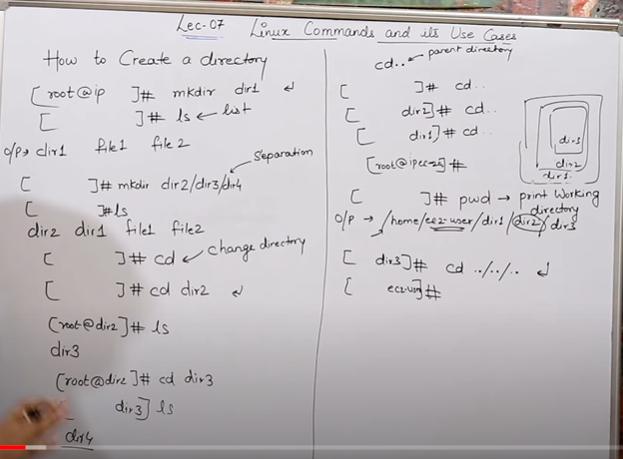 Lec-07 Linux Commands and its Use Cases
How to Create a directory
[root@ip ]# mkdir dir1 ↵
[ ]# ls ← list
O/P→ dir1 file1 file2
Separation
[ ]# mkdir dir2/dir3/dir4
[ ]#ls
dir2 dir1 file1 file2
[ ]# cd ← change directory
[ ]# cd dir2 ↵
[root@dir2]# ls
dir3
[root@dir2]# cd dir3
[ dir3] ls
dir4
cd.. ← parent directory
[ ]# cd..
[ dir2]# cd..
[ dir1]# cd..
[root@ipec2]#
dir3
dir2
dir1
[ ]# pwd → print Working
directory
O/P → /home/ec2-user/dir1/dir2/dir3
[ dir3]# cd ../../.. ↵
[ ]#